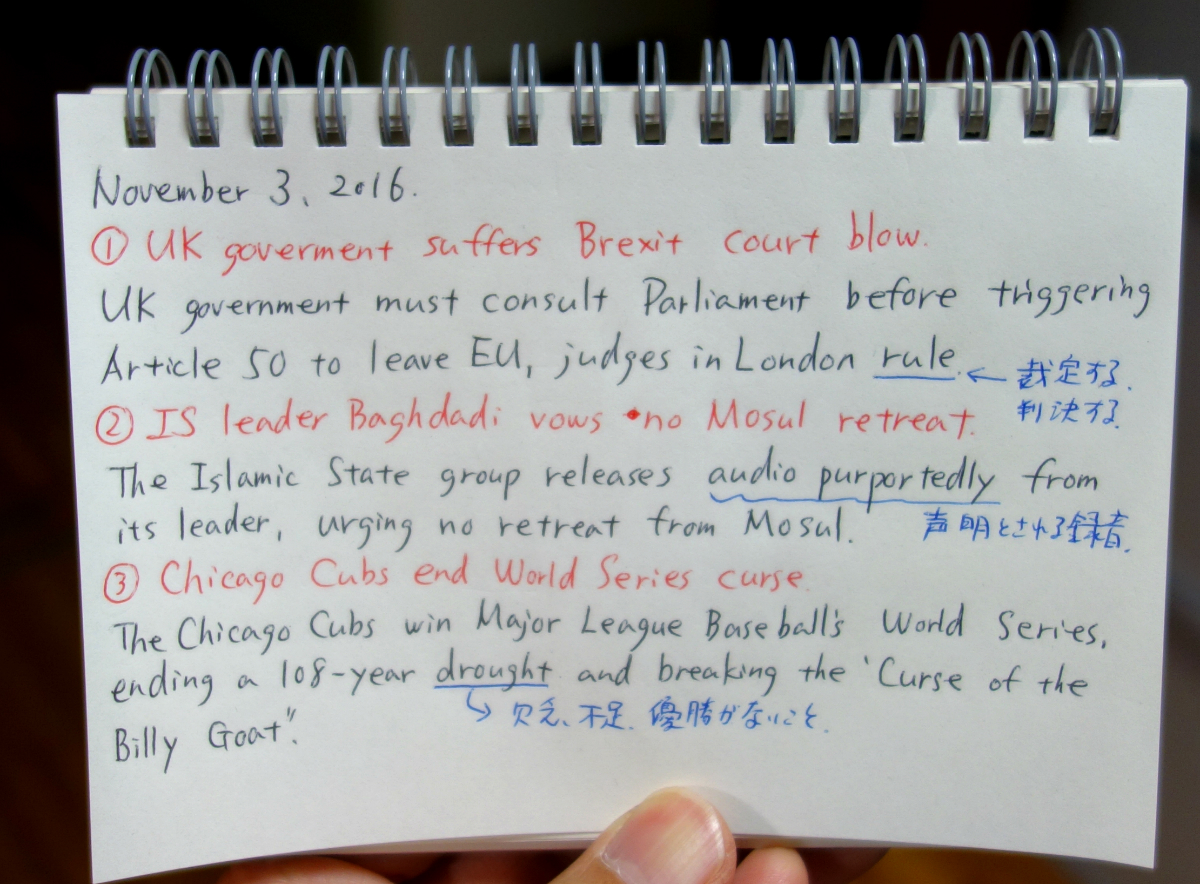 November 3, 2016.
① UK goverment suffers Brexit court blow.
UK government must consult Parliament before triggering
Article 50 to leave EU, judges in London rule. ← 裁定する.
判決する.
② IS leader Baghdadi vows no Mosul retreat.
The Islamic State group releases audio purportedly from
its leader, urging no retreat from Mosul.
声明とされる録音.
③ Chicago Cubs end World Series curse.
The Chicago Cubs win Major League Baseball's World Series,
ending a 108-year drought and breaking the 'Curse of the
欠乏、不足. 優勝がないこと.
Billy Goat".